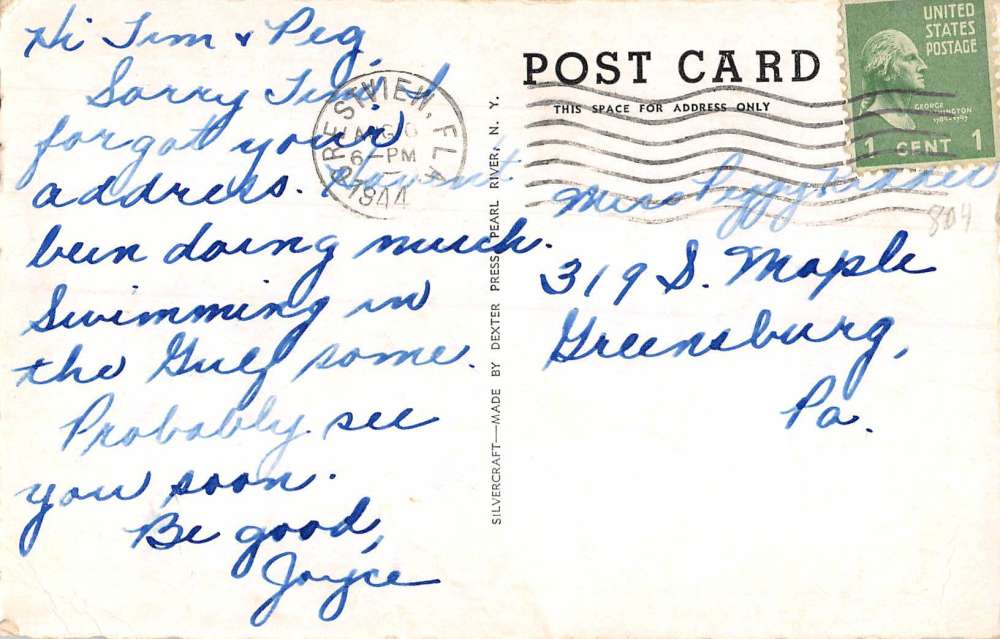 Hi Jim & Peg,
Sorry Jim, I
forgot your
address. Haven't
been doing much.
Swimming in
the Gulf some.
Probably see
you soon.
Be good,
Joyce
CRESTVIEW, FLA.
AUG
6-PM
1944
SILVERCRAFT—MADE BY DEXTER PRESS, PEARL RIVER, N. Y.
POST CARD
THIS SPACE FOR ADDRESS ONLY
UNITED
STATES
POSTAGE
GEORGE
WASHINGTON
1789-1797
1 CENT 1
804
Miss Peggy
319 S. Maple
Greensburg,
Pa.